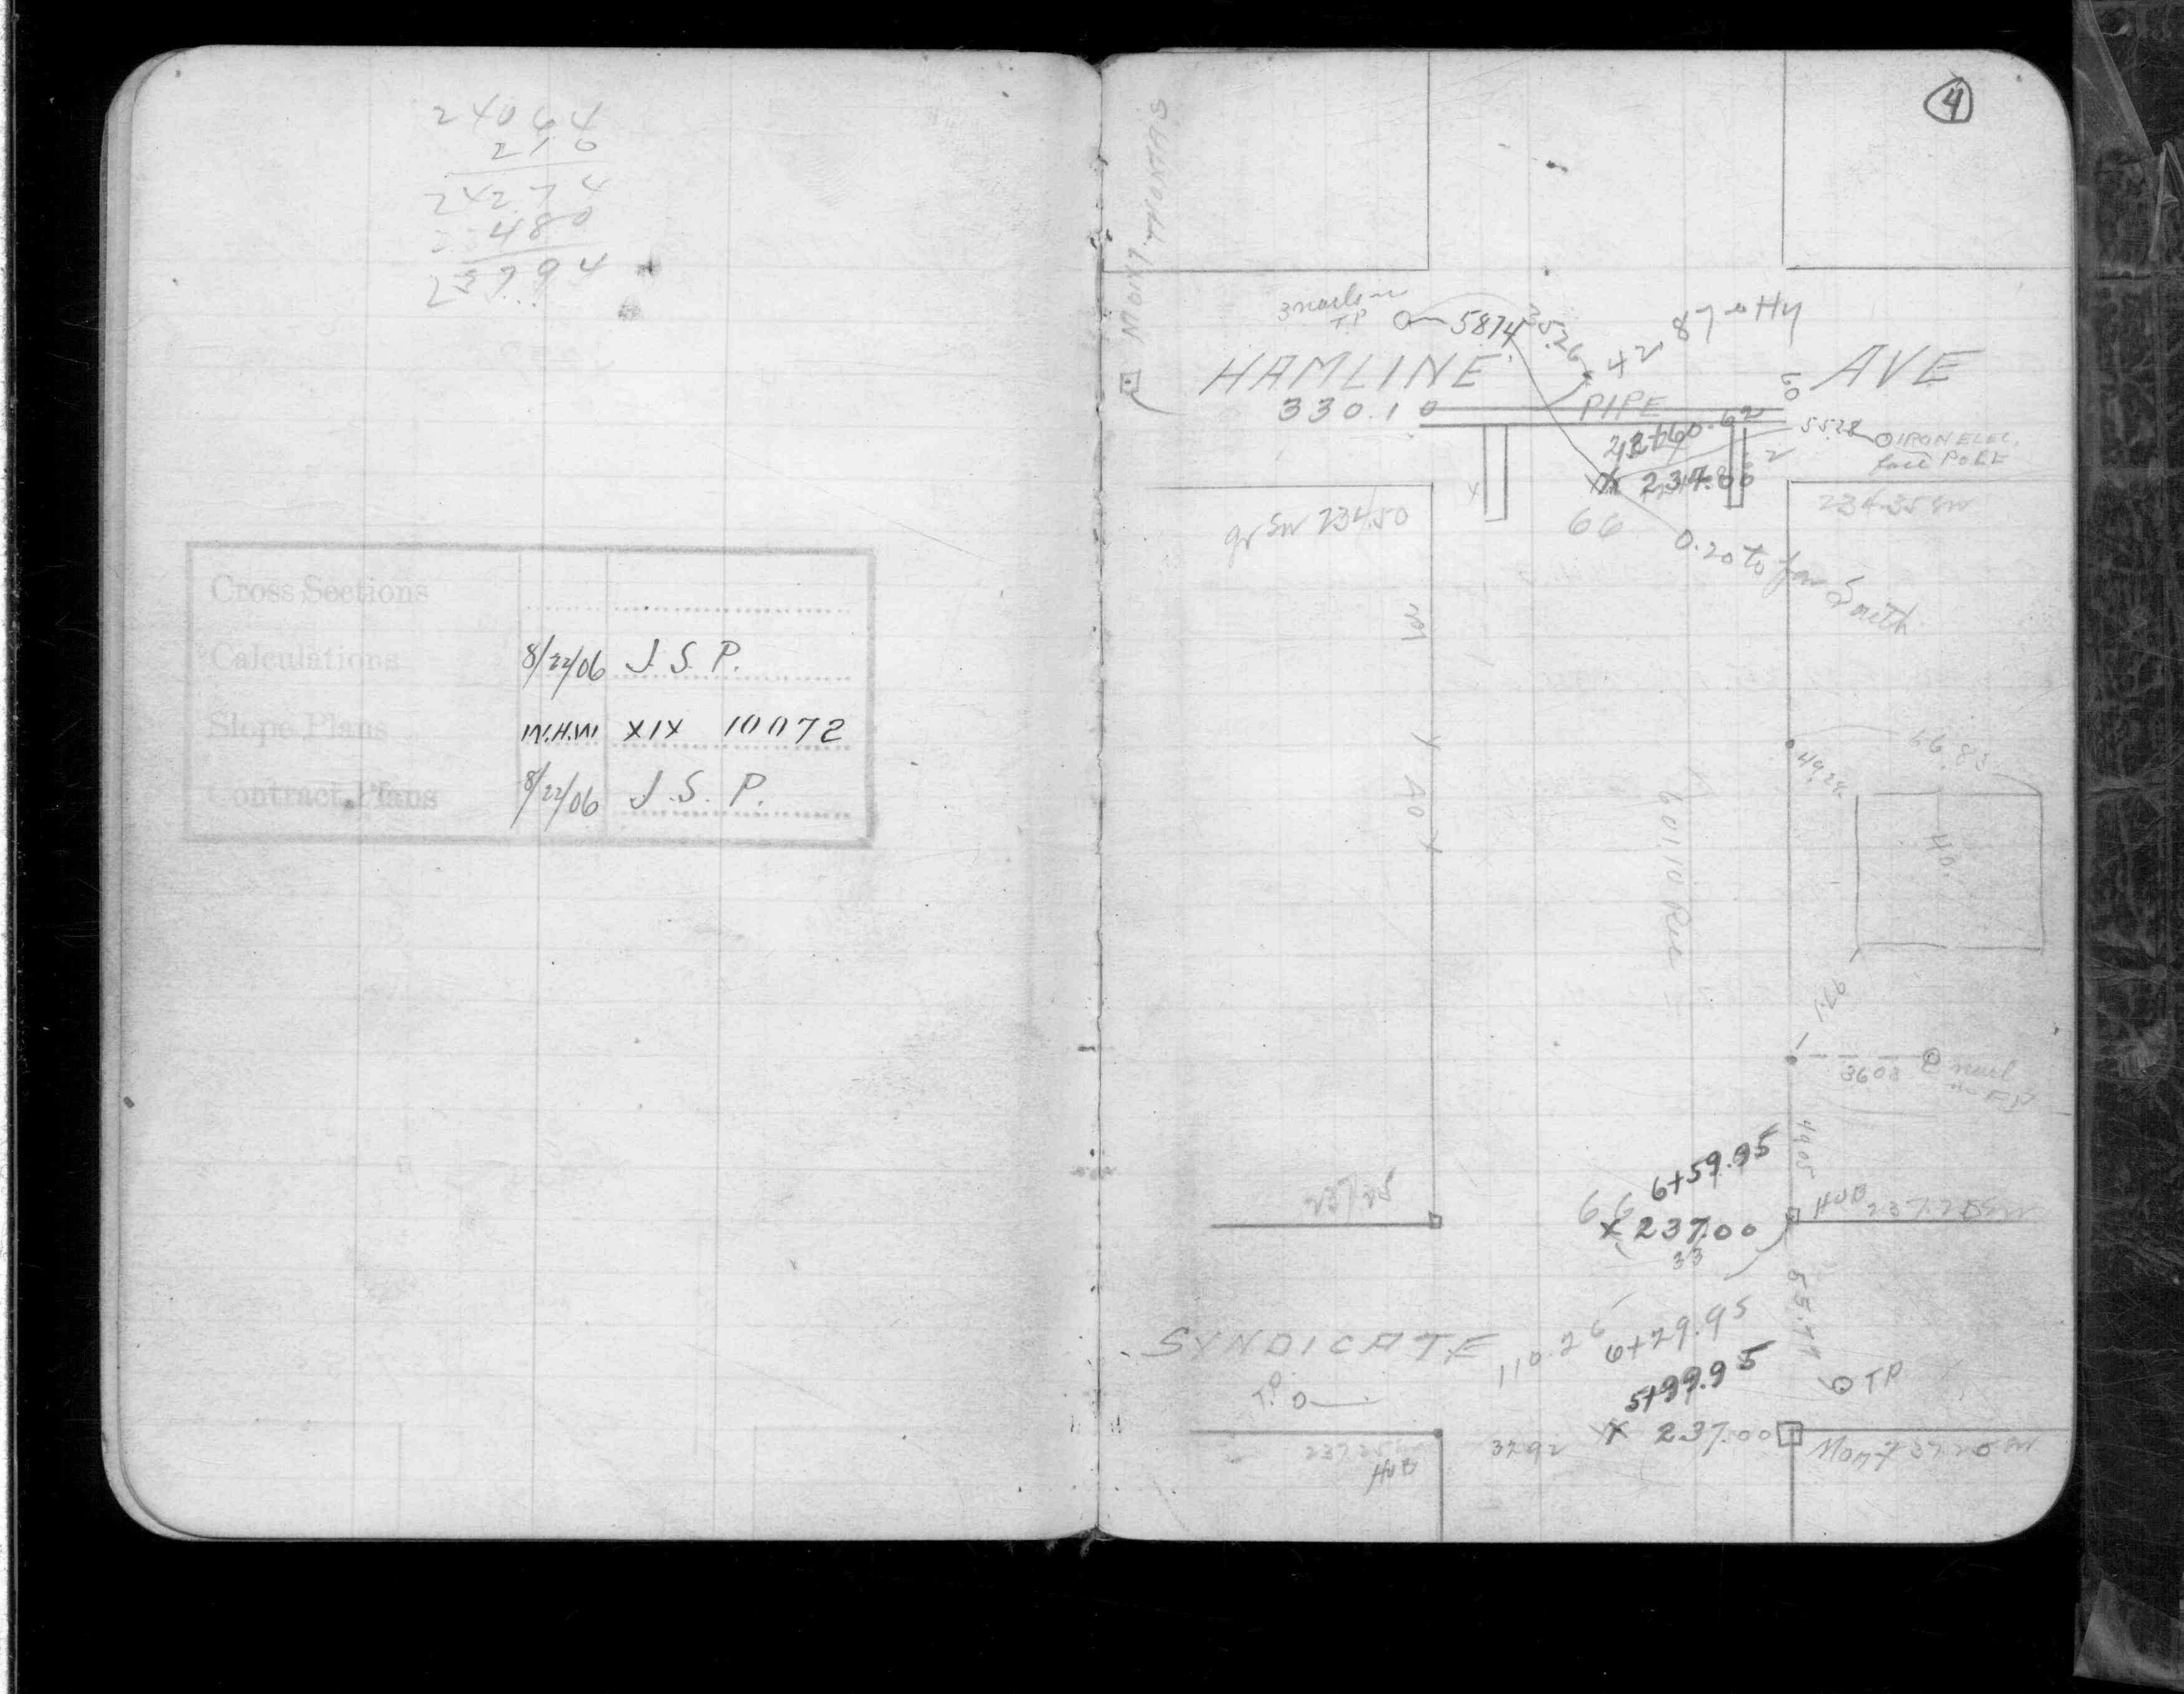 24064
210
24274
480
23794
Cross Sections
Calculations 8/22/06 J. S. P.
Slope Plans W.H.W XIX 10072
Contract Plans 8/22/06 J. S. P.
4
MONT. THOMAS
3 nails in
T.P
5874
35.26
42.87 to Hy
HAMLINE AVE
60
330.10
PIPE
5528
IRON ELEC.
face POLE
gr SW 234.50
66
234.35 SW
0.20 to far South
66.83
49.28
601.10 Rec
HO.
17.6
3608
nail
in T.P
49.05
6+59.95
66
237.25
HUB
237.20 SW
x 237.00
33
55.77
SYNDICATE
110.26
6+29.95
5+99.95
T.P
TP
x 237.00
237.25 SW
HUB
3292
Mont 237.20 SW